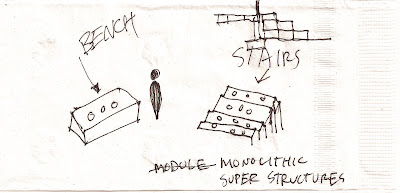 BENCH
STAIRS
MODULE MONOLITHIC
SUPER STRUCTURES